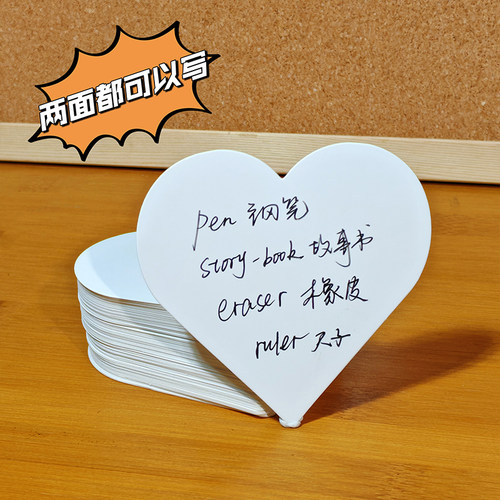 两面都可以写
pen 钢笔
story-book 故事书
eraser 橡皮
ruler 尺子